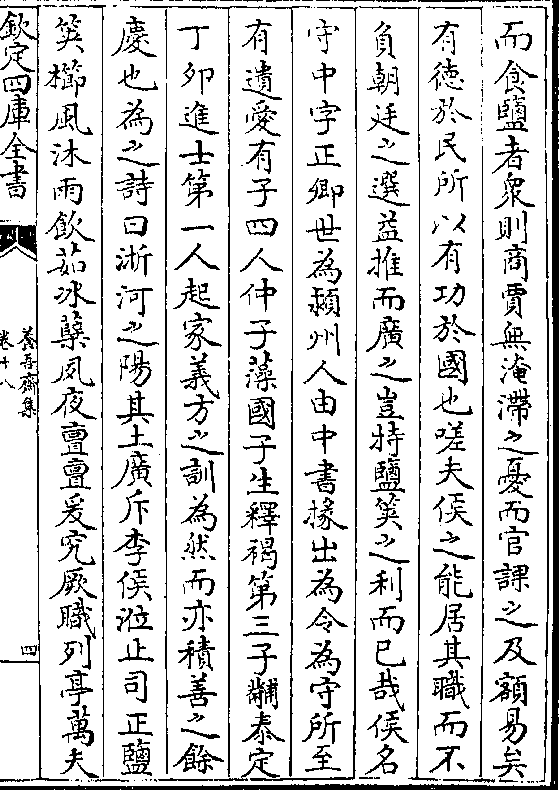 而食鹽者衆則商賈無淹滯之憂而官課之及額易矣
有德於民所以有功於國也嗟夫侯之能居其職而不
負朝廷之選益推而廣之豈持鹽筴之利而已哉侯名
守中字正卿世為潁州人由中書掾出為令為守所至
有遺愛有子四人仲子藻國子生釋褐第三子黼泰定
丁卯進士第一人起家義方之訓為然而亦積善之餘
慶也為之詩曰淅河之陽其土廣斥李侯涖止司正鹽
筴櫛風沐雨飲茹冰蘖夙夜亹亹爰究厥職列亭萬夫
欽定四庫全書
養吾齋集
卷十八
四